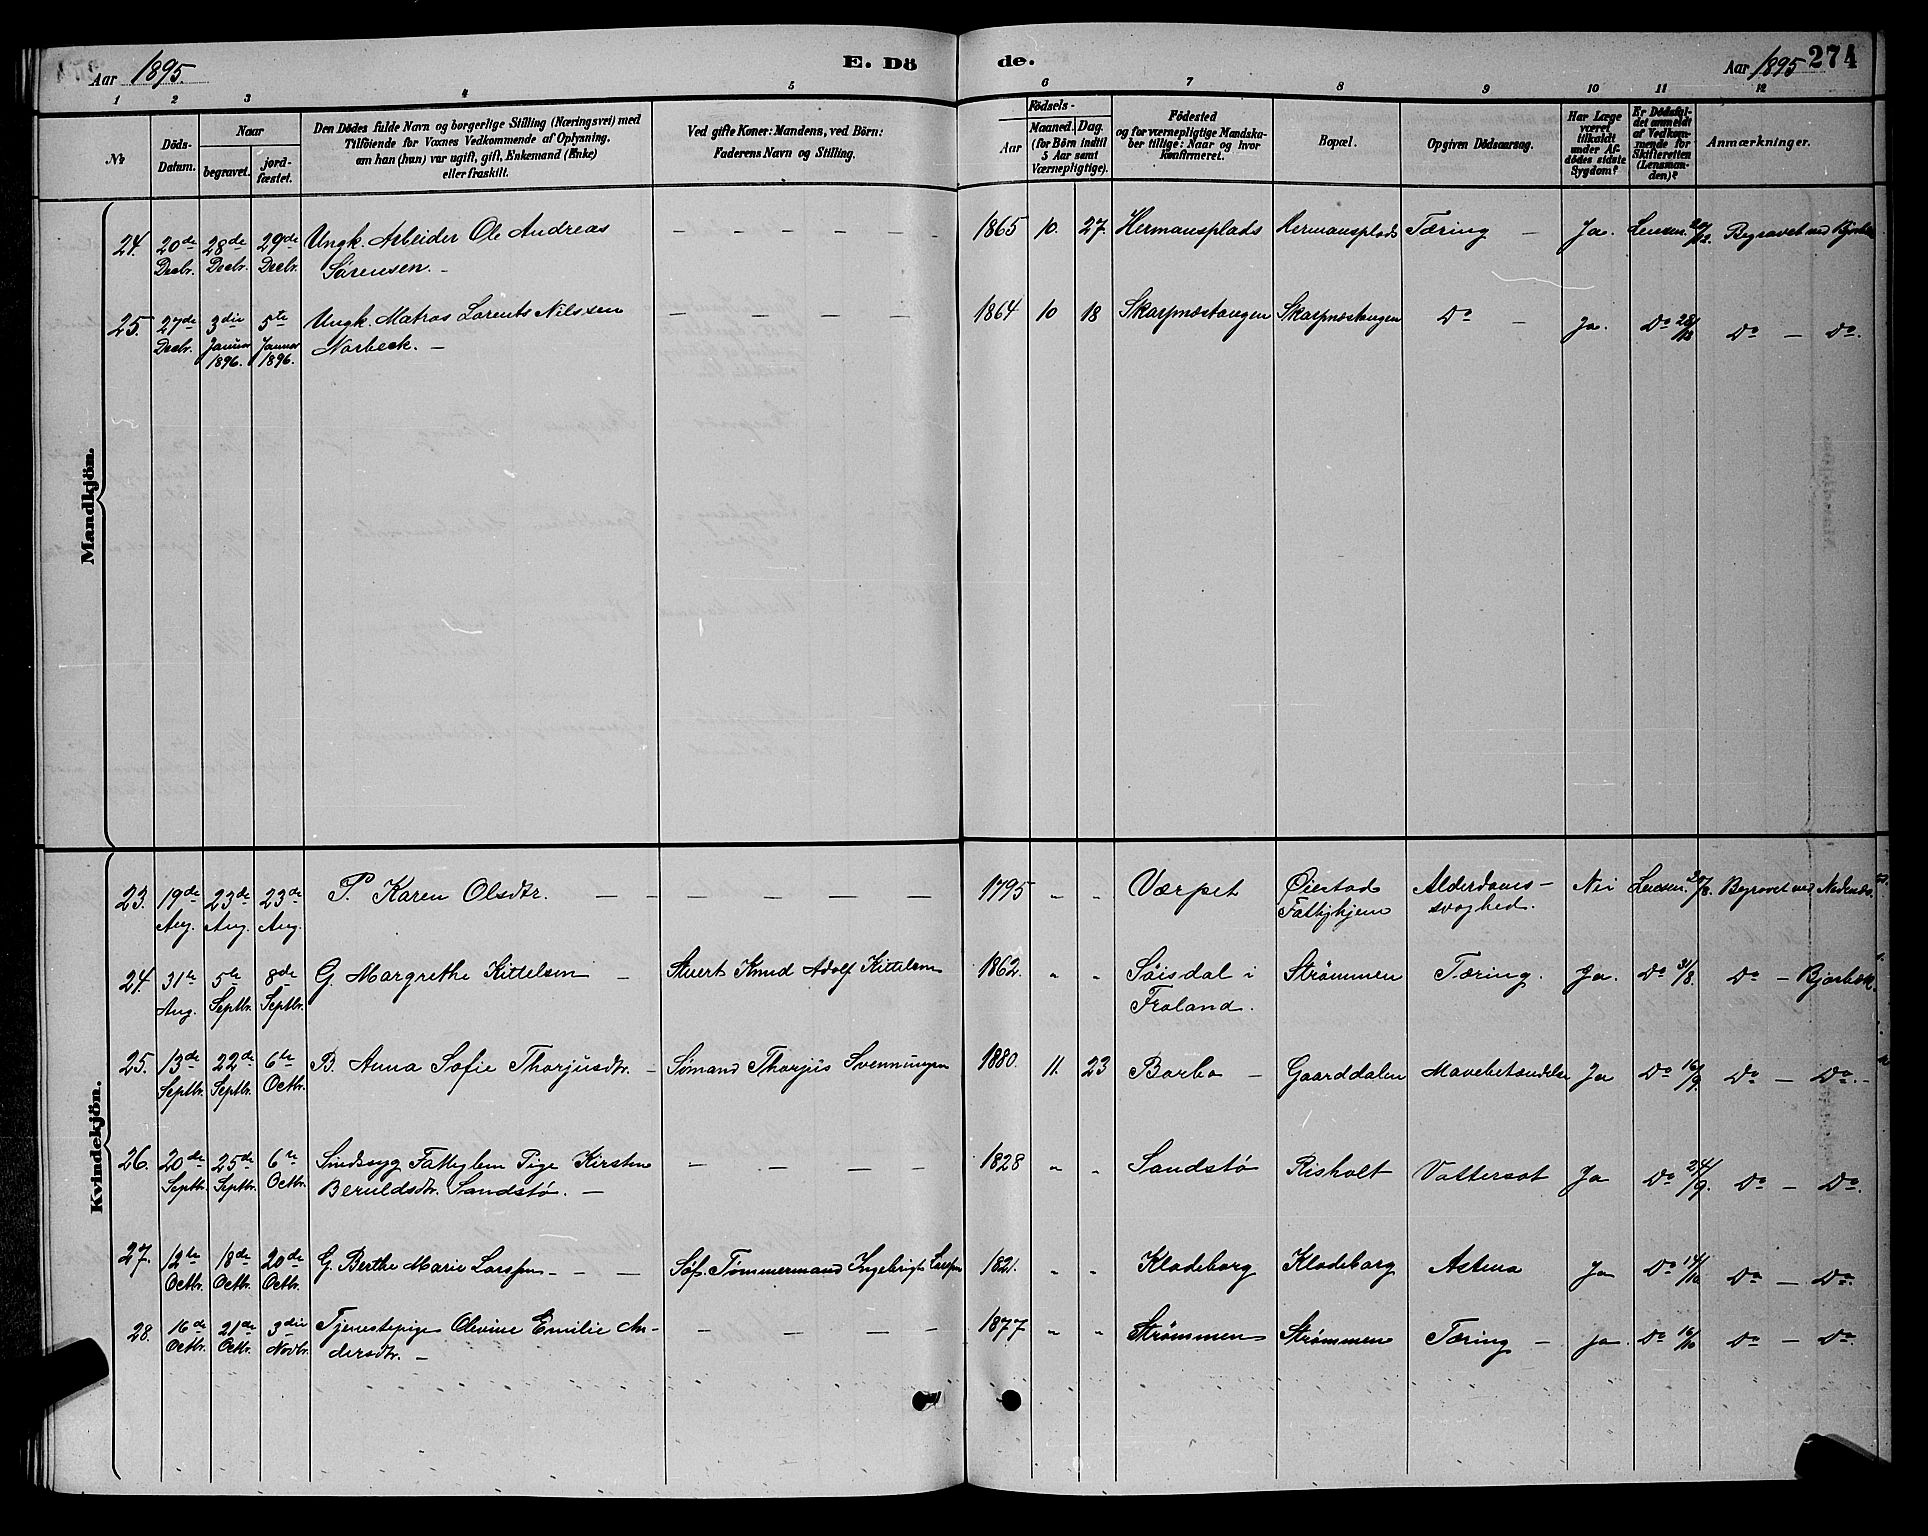 Aar 1895.
E. Dö
de.
Aar 1895 274
1 2 3 4 5 6 7 8 9 10 11 12
No
Döds-
Datum.
Naar
begravet.
jord-
fæstet.
Den Dödes fulde Navn og borgerlige Stilling (Næringsvei) med
Tilföiende for Voxnes Vedkommende af Oplysning,
om han (hun) var ugift, gift, Enkemand (Enke)
eller fraskilt.
Ved gifte Koner: Mandens, ved Börn:
Faderens Navn og Stilling.
Födsels-
Aar
Maaned. Dag.
(for Börn indtil
5 Aar samt
Værnepligtige).
Födested
og for værnepligtige Mandska-
ber tillige: Naar og hvor
konfirmeret.
Bopæl.
Opgiven Dödsaarsag.
Har Læge
været
tilkaldt
under Af-
dödes sidste
Sygdom?
Er Dödsfal-
det anmeldt
af Vedkom-
mende for
Skifteretten
(Lensman-
den)?
Anmærkninger.
Mandkjön.
24. 20de Decbr. 28de Decbr. 29de Decbr. Ungk. Arbeider Ole Andreas — — — — 1865 10. 27 Hermansplads Hermansplads Tæring — Ja. Lensm. 20/12. Begravet ved
Sørensen. —
25. 27de Decbr. 3die Januar 1896. 5te Januar 1896. Ungk. Matros Lorents Nilssen — — — — 1864 10 18 Skarpnæstangen Skarpnæstangen Do — Ja. Do 28/12 Do — Do.
Norbeck. —
Kvindekjön.
23. 19de Aug. 23de Aug. 23de Aug. P. Karen Olsdtr. — — — — — — 1795 " " Værpet Øiestad Alderdoms- Nei Lensm. 20/8. Begravet ved Nedenæs.
Fattighjem svaghed.
24. 31te Aug. 5te Septbr. 8de Septbr. G. Margrethe Kittelsen — Stuert Knud Adolf Kittelsen 1862. " " Søisdal i Strømmen Tæring. Ja. Do 31/8. Do — Bjorbek.
Froland.
25. 13de Septbr. 22de Septbr. 6te Octbr. B. Anna Sofie Thorjusdtr. — Sømand Thorjus Svenningsen 1880. 11. 23 Barbo — Gaarddalen Mavebetændelse Ja Do 16/9. Do — Do. —
26. 20de Septbr. 25de Septbr. 6te Octbr. Sindssyg Fattiglem Pige Kirsten — — — — 1828 " " Sandstø Risholt Vattersot Ja Do 24/9. Do — Do.
Beruldsdtr. Sandstø. —
27. 12te Octbr. 18de Octbr. 20de Octbr. G. Berthe Marie Larssen — — — Søf. Tømmermand Ingebrigt Larssen 1821. " " Klodeborg Klodeborg Astma Ja Do 14/10 Do — Do.
28. 16de Octbr. 21de Octbr. 3die Novbr. Tjenestepige Olevine Emilie An- — — — — 1877 " " Strømmen Strømmen Tæring — Ja Do 16/10 Do — Do.
dersdtr. —